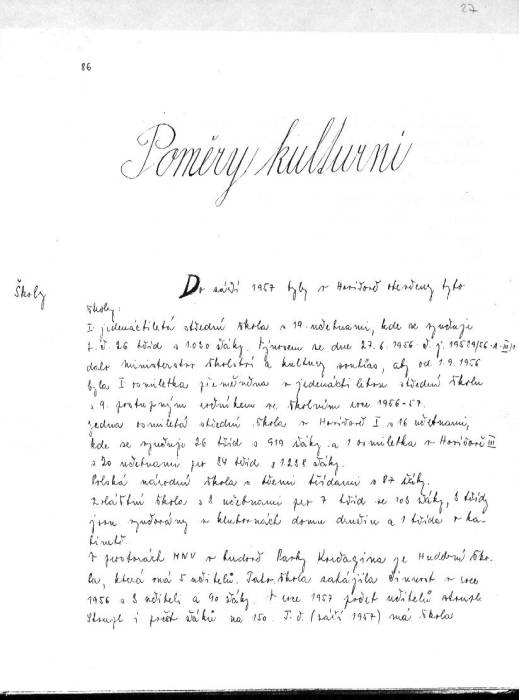 27
86
Poměry kulturní
Školy
Do září 1957 byly v Havířově otevřeny tyto
školy:
I jedenáctiletá střední škola s 19 učebnami, kde se vyučuje
t. č. 26 tříd s 1.030 žáky. Výnosem ze dne 27.6.1956 č. j.
dalo ministerstvo školství a kultury souhlas, aby od 1.9.1956
byla I osmiletka přeměněna v jedenáctiletou střední školu
s 9. postupným ročníkem ve školním roce 1956-57.
Jedna osmiletá střední škola v Havířově I s 16 učebnami,
kde se vyučuje 26 tříd s 919 žáky a 1 osmiletka v Havířově III
s 20 učebnami pro 34 tříd s 1.238 žáky.
Polská národní škola s třemi třídami s 87 žáky.
Zvláštní škola s 3 učebnami pro 7 tříd se 103 žáky, 3 třídy
jsou vyučovány v klubovnách domu družin a 1 třída v ka-
binetě.
V prostorách MNV v budově Parky je Hudební ško-
la, která má 5 učitelů. Tato škola zahájila činnost v roce
1956 s 3 učiteli a 90 žáky. V roce 1957 počet učitelů stoupl
Stoupl i počet žáků na 150. T. č. (září 1957) má škola